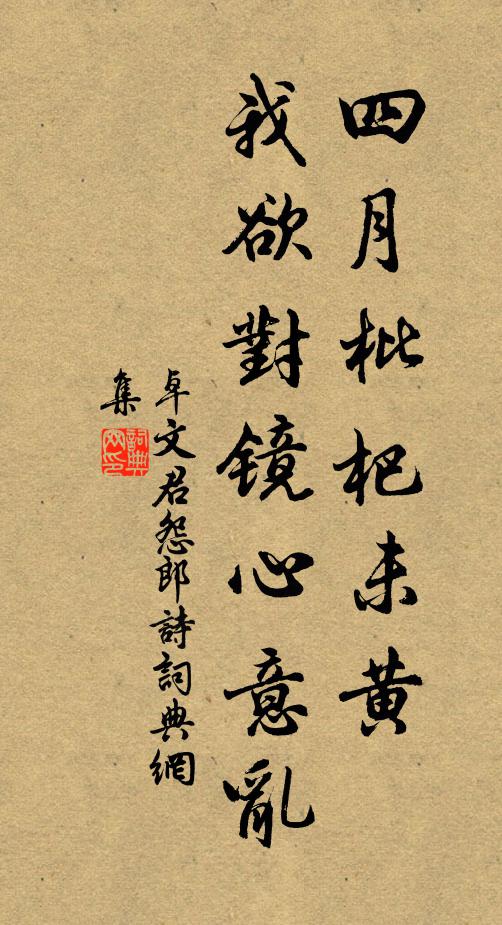 四月枇杷未黄
我欲對镜心意亂
卓文君怨郎詩詞典網
集
詞典
网印